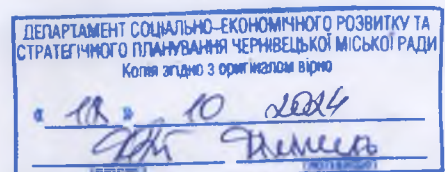 ДЕПАРТАМЕНТ СОЦІАЛЬНО-ЕКОНОМІЧНОГО РОЗВИТКУ ТА
СТРАТЕГІЧНОГО ПЛАНУВАННЯ ЧЕРНІВЕЦЬКОЇ МІСЬКОЇ РАДИ
Копія згідно з оригіналом вірно
« 12 » 10 2024